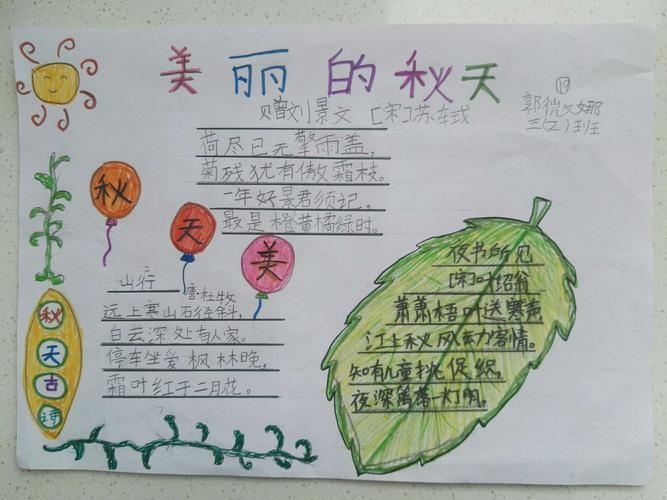 美丽的秋天
⑲
郭 娜
三(2)班
赠刘景文 [宋]苏轼
荷尽已无擎雨盖,
菊残犹有傲霜枝。
一年好景君须记,
最是橙黄橘绿时。
秋
天
美
山行
唐·杜牧
远上寒山石径斜,
白云深处有人家。
停车坐爱枫林晚,
霜叶红于二月花。
秋
天
古
诗
夜书所见
[宋]叶绍翁
萧萧梧叶送寒声
江上秋风动客情。
知有儿童挑促织,
夜深篱落一灯明。